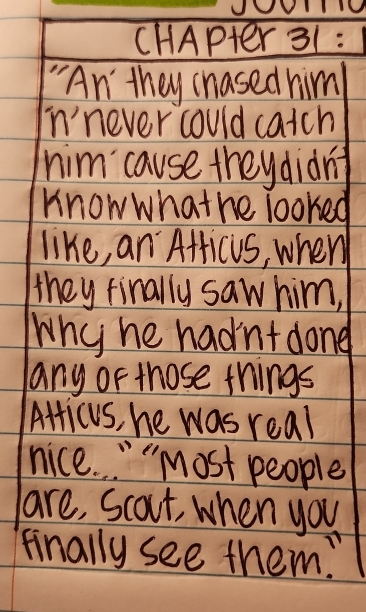 CHAPter 31:
"An' they chased him
'n' never could catch
him 'cause they didn't
know what he looked
like, an' Atticus, when
they finally saw him,
why he had'nt done
any of those things
Atticus, he was real
nice..." "Most people
are, Scout, when you
finally see them."